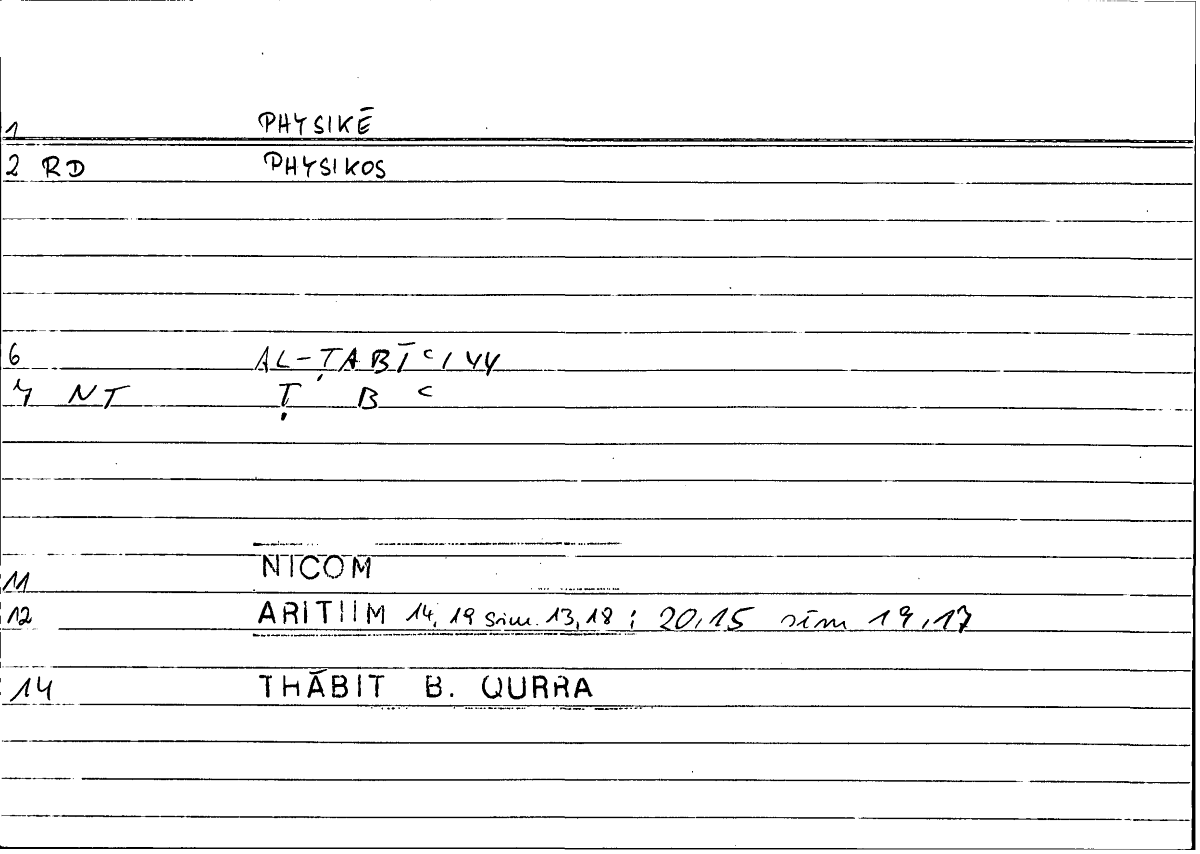 1 PHYSIKĒ
2 RD PHYSIKOS
6 AL-ṬABĪʿIYY
7 NT Ṭ B ʿ
11 NICOM
12 ARITHM 14,19 sim. 13,18; 20,15 sim 19,17
14 THĀBIT B. QURRA